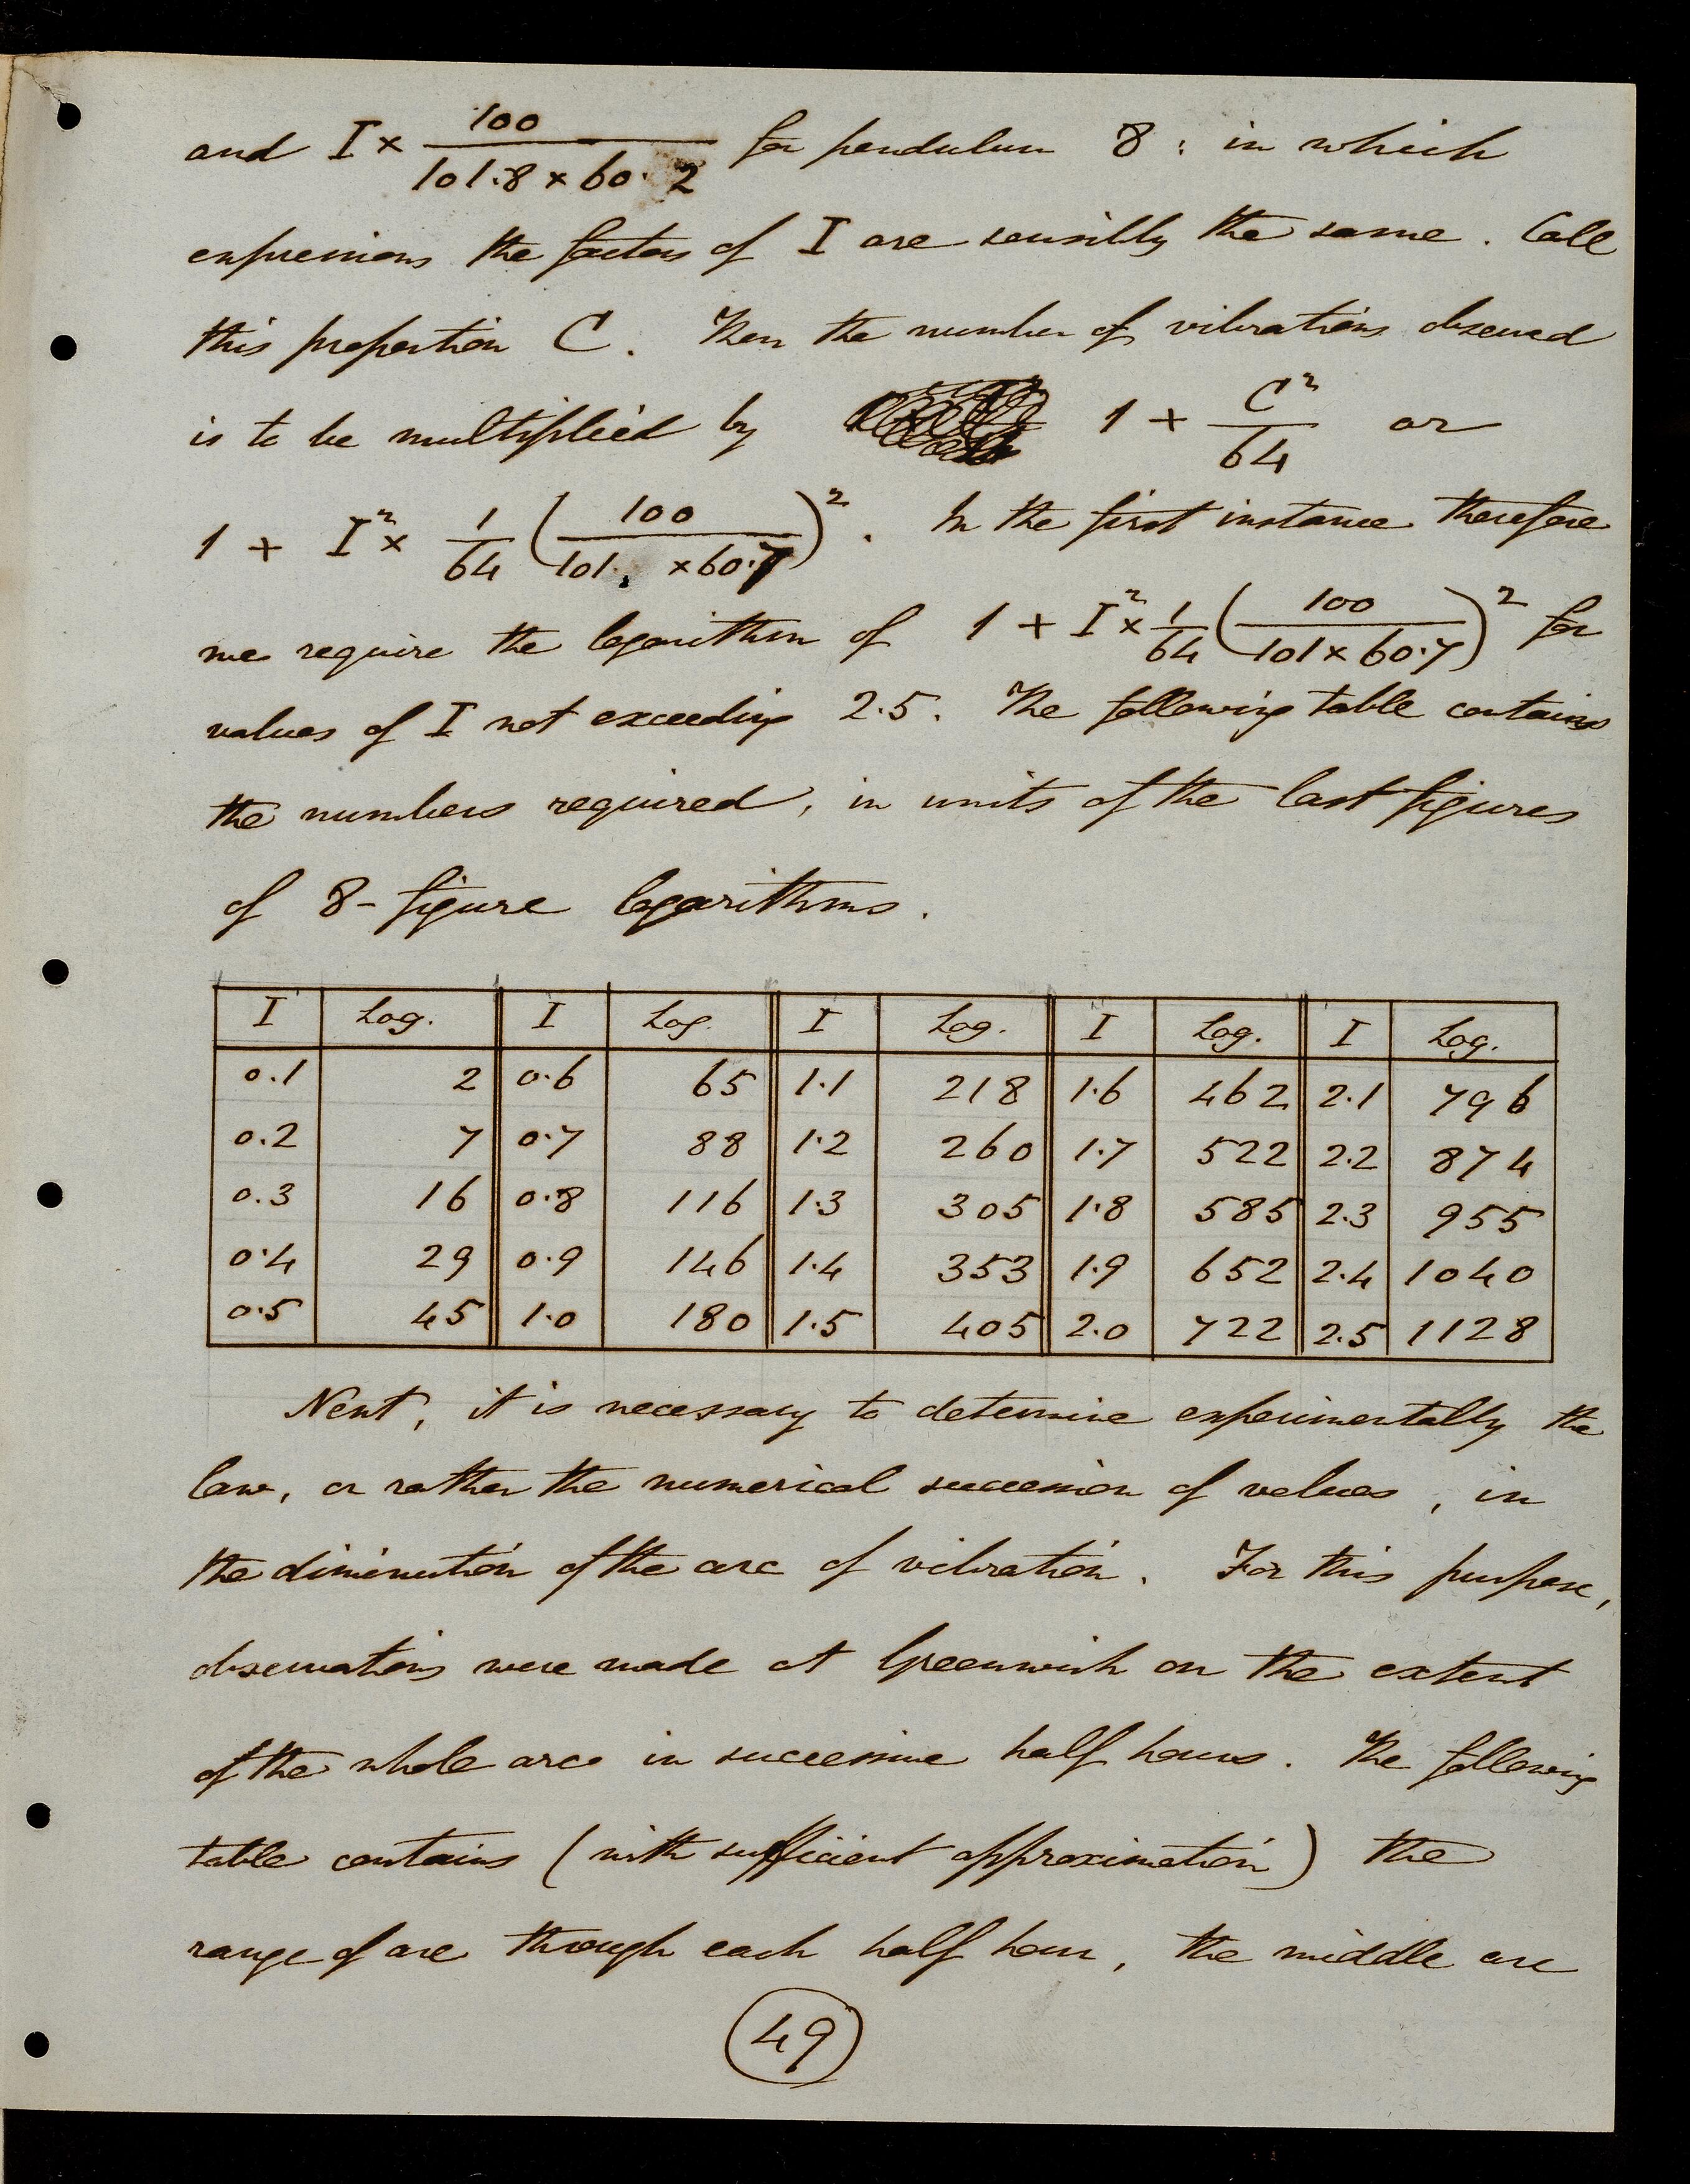 and I × 100 / 101.8 × 60.2 for pendulum 8 : in which
expressions the factors of I are sensibly the same. Call
this proportion C. Then the number of vibrations observed
is to be multiplied by 1 + C² / 64 or
1 + I² × 1/64 (100 / 101. × 60.7)². In the first instance therefore
we require the logarithm of 1 + I² × 1/64 (100 / 101 × 60.7)² for
values of I not exceeding 2.5. The following table contains
the numbers required, in units of the last figures
of 8-figure logarithms.
I Log. I Log. I Log. I Log. I Log.
0.1 2 0.6 65 1.1 218 1.6 462 2.1 796
0.2 7 0.7 88 1.2 260 1.7 522 2.2 874
0.3 16 0.8 116 1.3 305 1.8 585 2.3 955
0.4 29 0.9 146 1.4 353 1.9 652 2.4 1040
0.5 45 1.0 180 1.5 405 2.0 722 2.5 1128
Next, it is necessary to determine experimentally the
law, or rather the numerical succession of values, in
the diminution of the arc of vibration. For this purpose,
observations were made at Greenwich on the extent
of the whole arcs in successive half hours. The following
table contains (with sufficient approximation) the
range of arc through each half hour, the middle arc
49